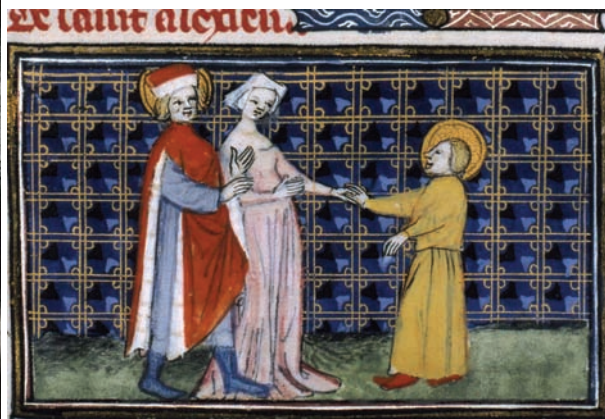 De saint alexien.